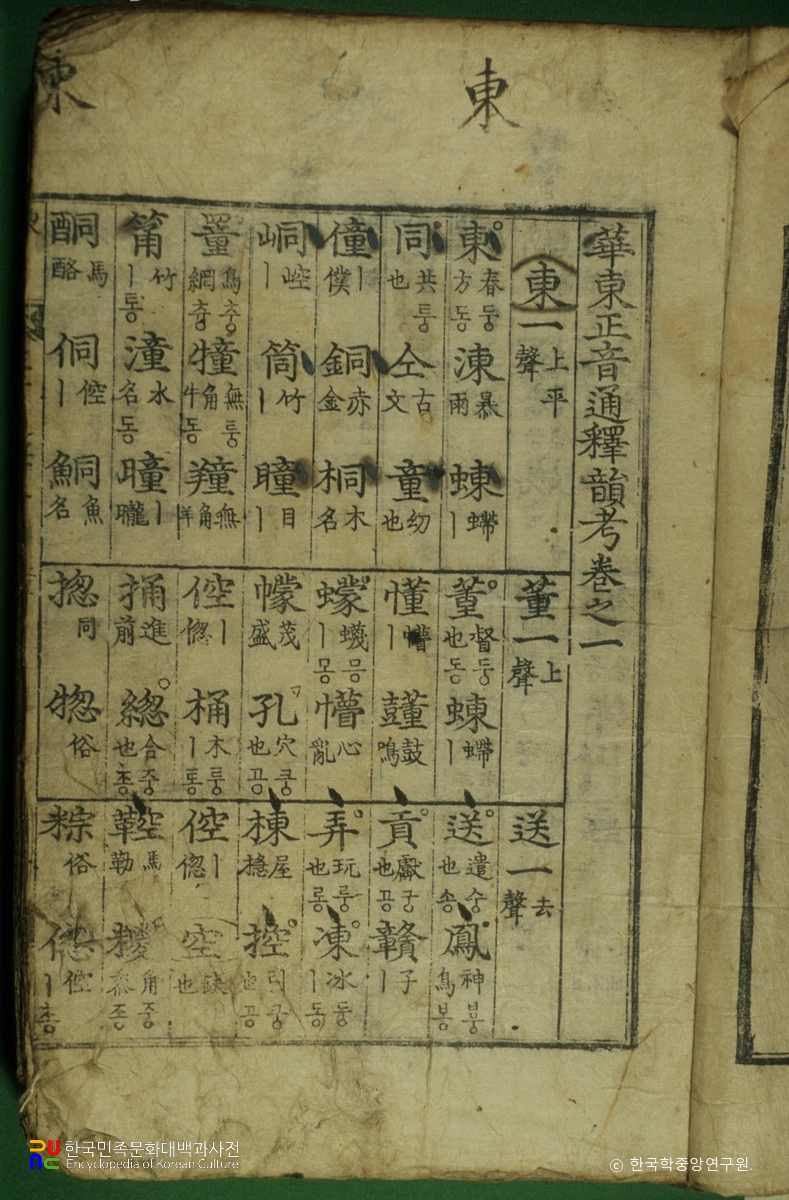 東
東
華東正音通釋韻考卷之一
東一 上平聲
東 春方 둥동
涷 暴雨
蝀 螮丨
同 共也 퉁
仝 古文
童 幼也
僮 丨僕
銅 赤金
桐 木名
峒 崆丨
筒 竹丨
瞳 目丨
罿 鳥網 충츙
犝 無角牛 퉁동
羵 無角羊
筩 竹丨 통
潼 水名 동
曈 丨曨
酮 馬酪
侗 倥丨
鮦 魚名
董一 上聲
董 督也 둥동
蝀 螮丨
懂 懵丨
鼓鳴
蠓 蠛丨 믕몽
懵 心亂
幪 茂盛
孔 穴也 쿵공
倥 丨偬
桶 木丨 퉁통
捅 進前
總 合也 중총
揔 同
惣 俗
送一 去聲
送 遣也 숭송
鳳 神鳥 붕봉
貢 獻也 궁공
贛 子丨
弄 玩也 룽롱
凍 冰丨 둥동
棟 屋檼
控 引也 쿵공
倥 丨偬
空 缺也
鞚 馬勒
糉 角黍 중종
粽 俗
偬 倥丨 총
한국민족문화대백과사전
Encyclopedia of Korean Culture
© 한국학중앙연구원.